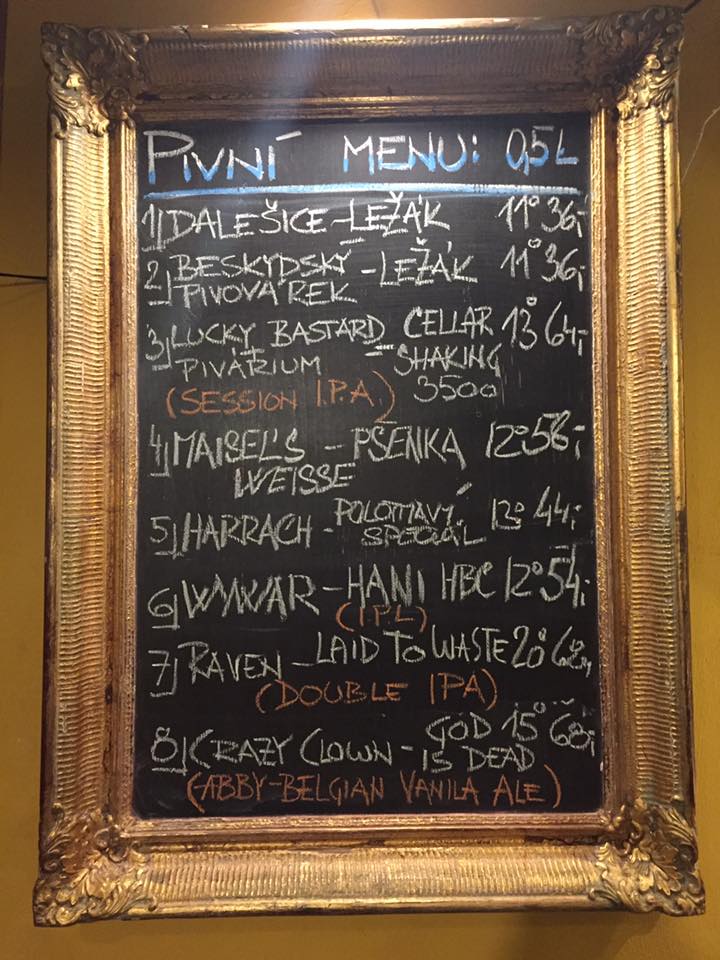 PIVNÍ MENU: 0,5L
1) DALEŠICE - LEŽÁK 11° 36,-
2) BESKYDSKÝ - LEŽÁK 11° 36,-
PIVOVÁREK
3) LUCKY BASTARD CELLAR 13° 64,-
PIVÁRIUM = SHAKING
(SESSION I.P.A.) 3500
4) MAISEL'S - PŠENKA 12° 58,-
WEISSE
5) HARRACH - POLOTMAVÝ 13° 44,-
SPECIÁL
6) WYWAR - HANI HBC 12° 54,-
(I.P.L)
7) RAVEN - LAID TO WASTE 20° 68,-
(DOUBLE IPA)
8) CRAZY CLOWN - GOD 15° 68,-
IS DEAD
(ABBY-BELGIAN VANILA ALE)